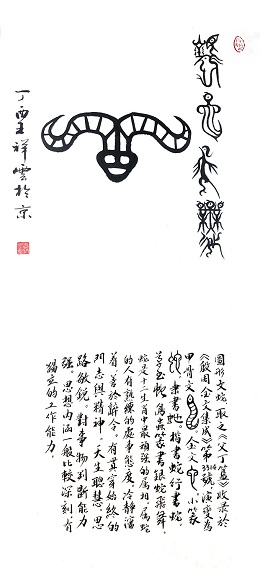 丁酉王祥雲於京
圖形文蛇，取之《父丁簋》收录於
《殷周金文集成》第3314號，演变為
甲骨文 金文 小篆
隶書蛇 楷書蛇 行書蛇
草書蛇 鳥虫篆書銀蛇飛舞
蛇是十二生肖中最頑强的属相，属蛇
的人有熟練的處事態度，冷靜沉
着，善於辭令。有其穿始終的
鬥志與精神，天生聰慧，思
路敏锐。對事物判斷能力
强，思想内涵一般比較深刻，有
獨立的工作能力。